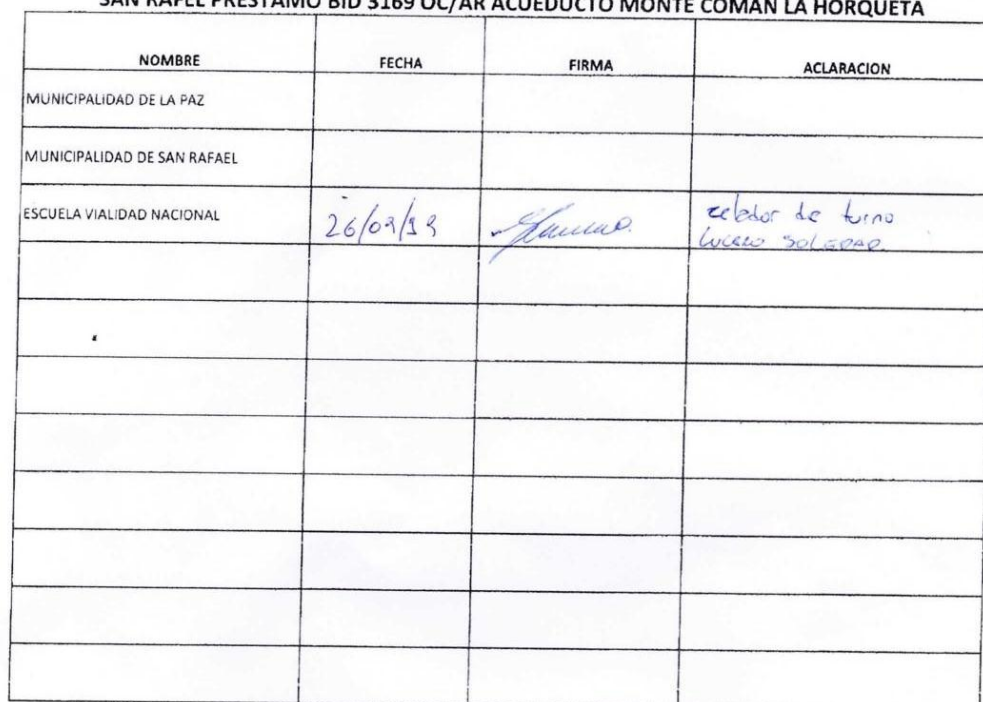 SAN RAFEL PRESTAMO BID 3169 OC/AR ACUEDUCTO MONTE COMAN LA HORQUETA
NOMBRE FECHA FIRMA ACLARACION
MUNICIPALIDAD DE LA PAZ
MUNICIPALIDAD DE SAN RAFAEL
ESCUELA VIALIDAD NACIONAL 26/09/19 celador de turno
LUCERO SOLEDAD